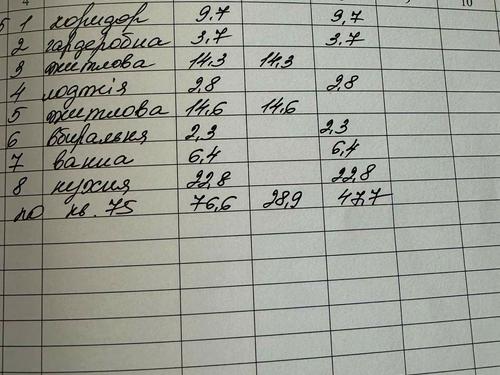 4 10
5 1 коридор 9,7 9,7
2 гардеробна 3,7 3,7
3 житлова 14,3 14,3
4 лоджія 2,8 2,8
5 житлова 14,6 14,6
6 вбиральня 2,3 2,3
7 ванна 6,4 6,4
8 кухня 22,8 22,8
по кв. 75 76,6 28,9 47,7